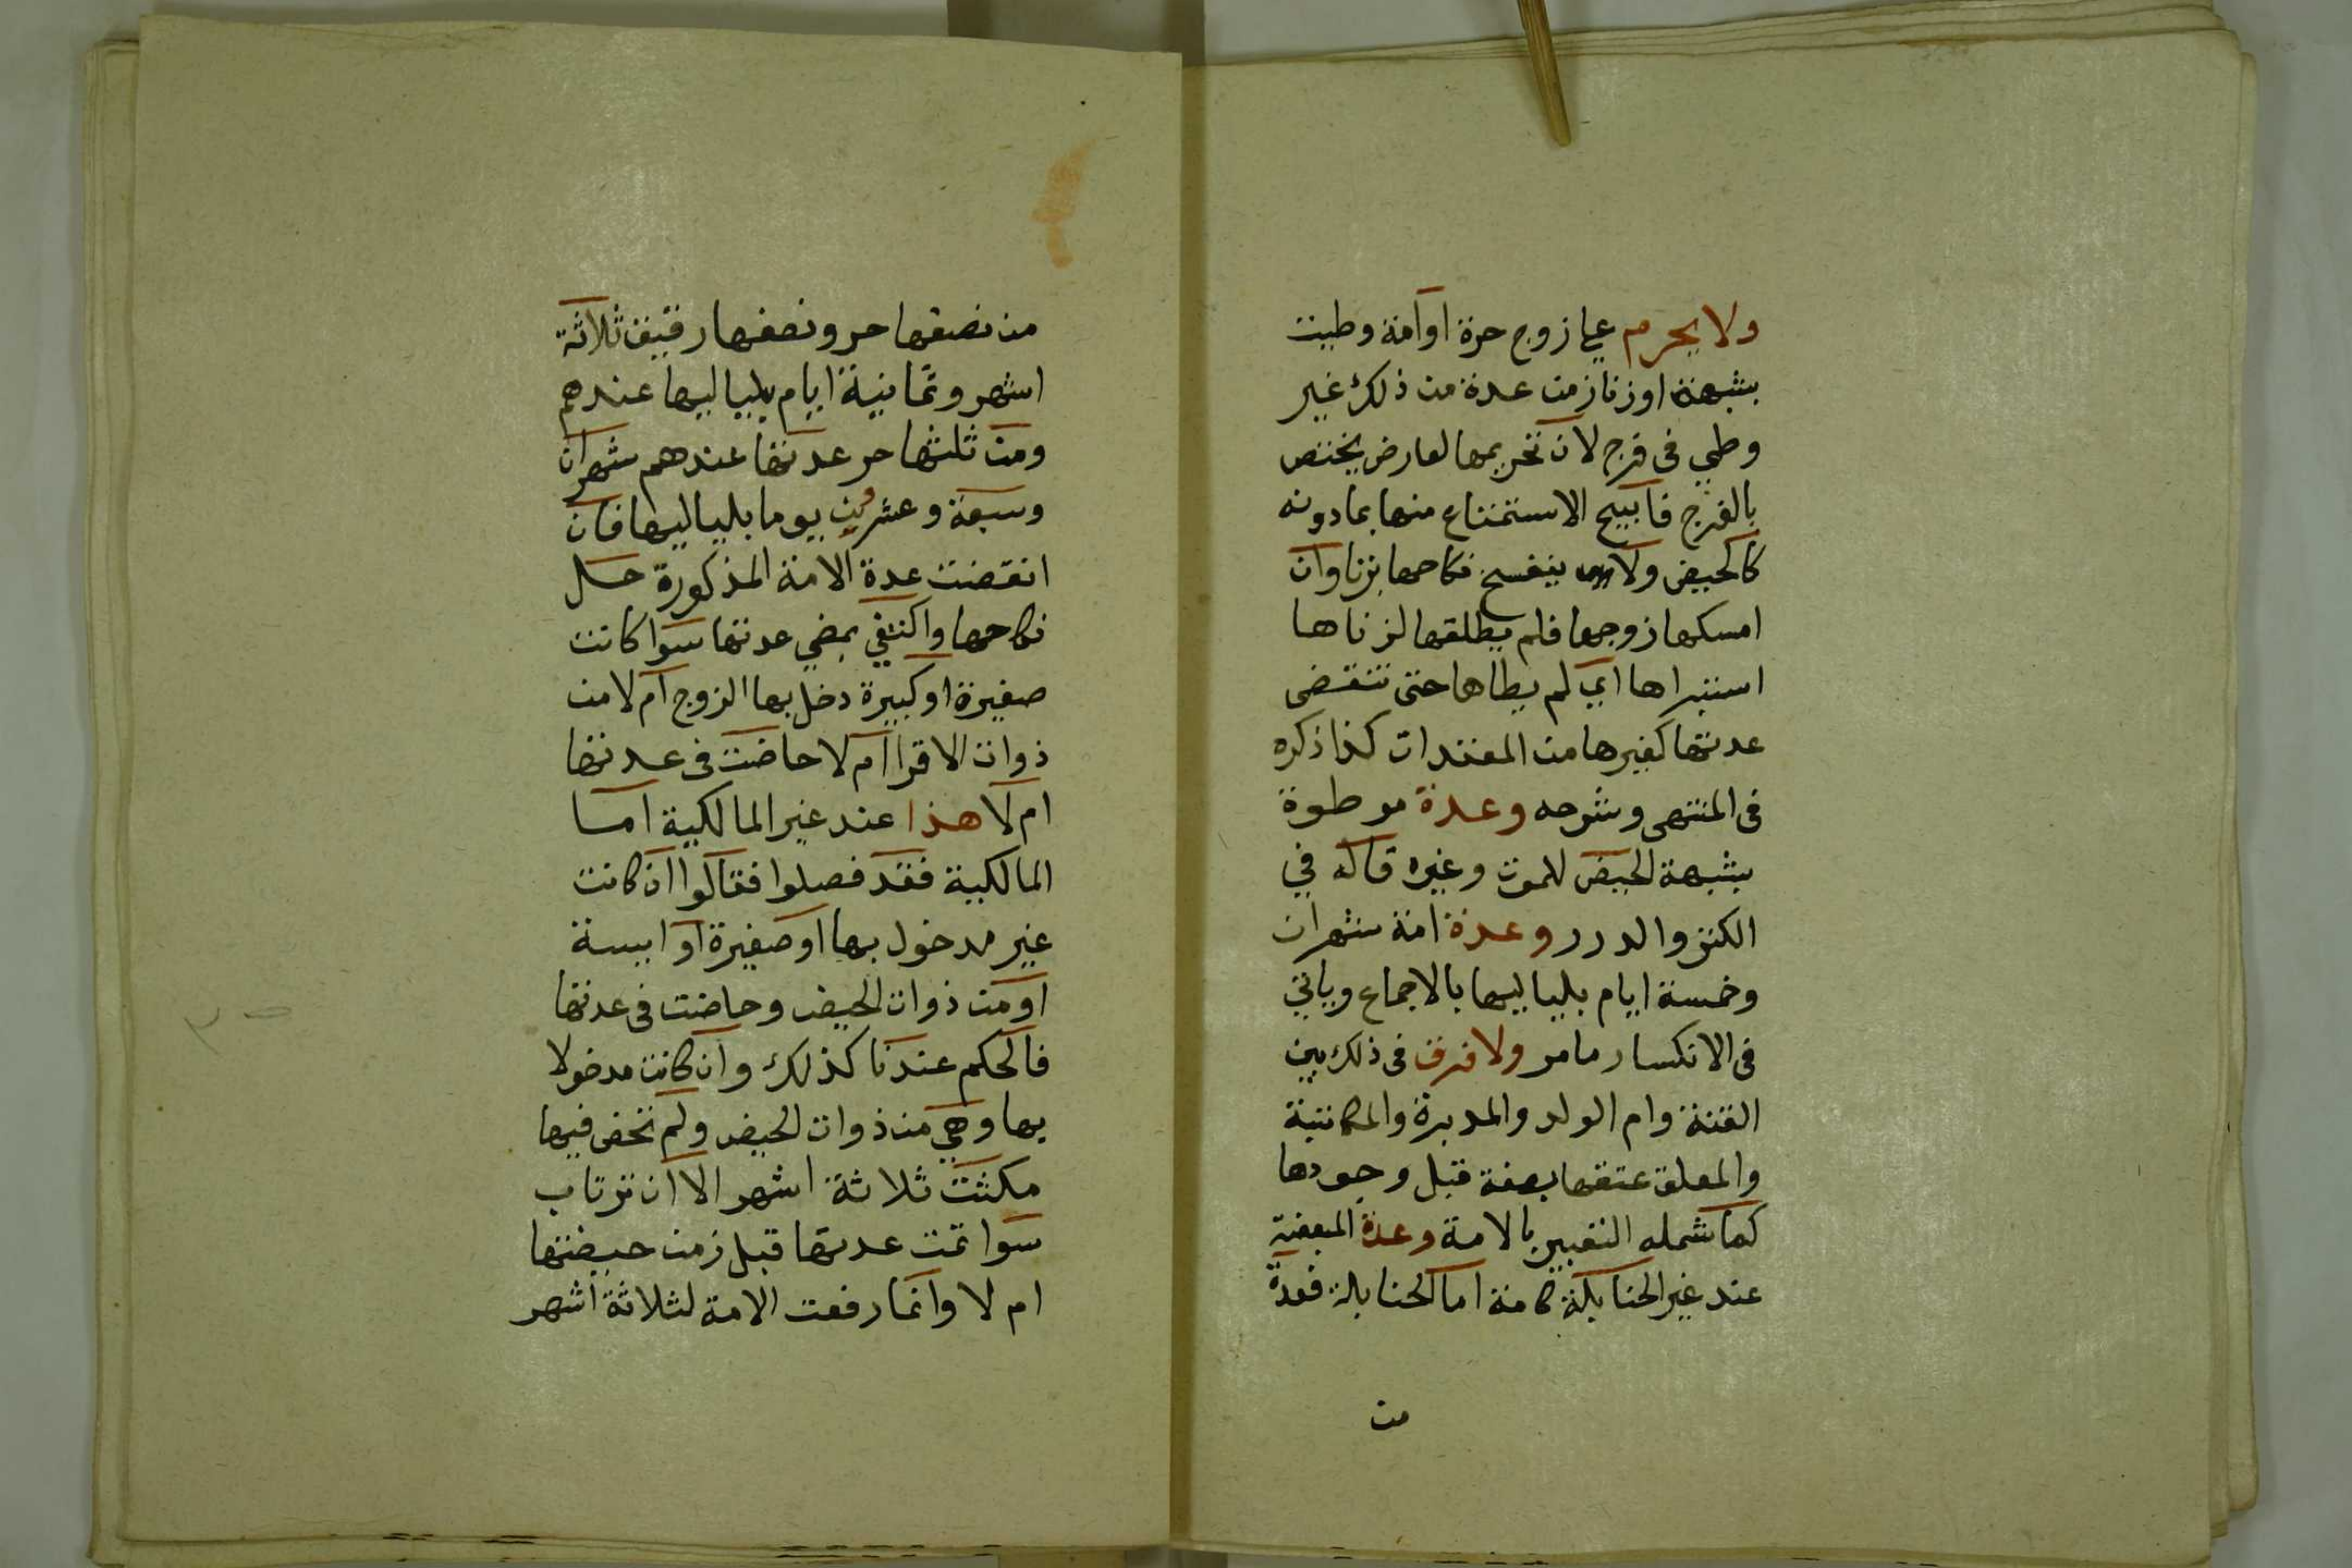 ولا يحرم علي زوج حرة او امة وطيت
بشبهة او زنا زمن عدة من ذلك غير
وطي في فرج لان تحريمها لعارض يختص
بالفرج فابيح الاستمتاع منها بما دونه
كالحيض ولا ينفسخ نكاحها بزنا وان
امسكها زوجها فلم يطلقها لزناها
استبراها اي لم يطاها حتى تنقضى
عدتها كغيرها من المعتدات كذا ذكره
فى المنتهى وشرحه وعدة موطوة
بشبهة الحيض للموت وغيره قاله في
الكنز والدرر وعدة امة شهران
وخمسة ايام بلياليها بالاجماع وياتي
فى الانكسار ما مر ولا فرق فى ذلك بين
القنة وام الولد والمدبرة والمكاتبة
والمعلق عتقها بصفة قبل وجودها
كما شمله التعبير بالامة وعدة المبعضة
عند غير الحنابلة كامة اما الحنابلة فعدة
من
من نصفها حر ونصفها رقيق ثلاثة
اشهر وثمانية ايام بلياليها عندهم
ومن ثلثها حر عدتها عندهم شهران
وسبعة وعشرين يوما بلياليها فان
انقضت عدة الامة المذكورة حل
نكاحها واكتفي بمضي عدتها سوا كانت
صغيرة او كبيرة دخل بها الزوج ام لا من
ذوات الاقرا ام لا حاضت فى عدتها
ام لا هذا عند غير المالكية اما
المالكية فقد فصلوا فقالوا ان كانت
غير مدخول بها او صغيرة او ايسة
او من ذوات الحيض وحاضت فى عدتها
فالحكم عندنا كذلك وان كانت مدخولا
بها وهي من ذوات الحيض ولم تحض فيها
مكثت ثلاثة اشهر الا ان ترتاب
سوا تمت عدتها قبل زمن حيضتها
ام لا وانما رفعت الامة لثلاثة اشهر